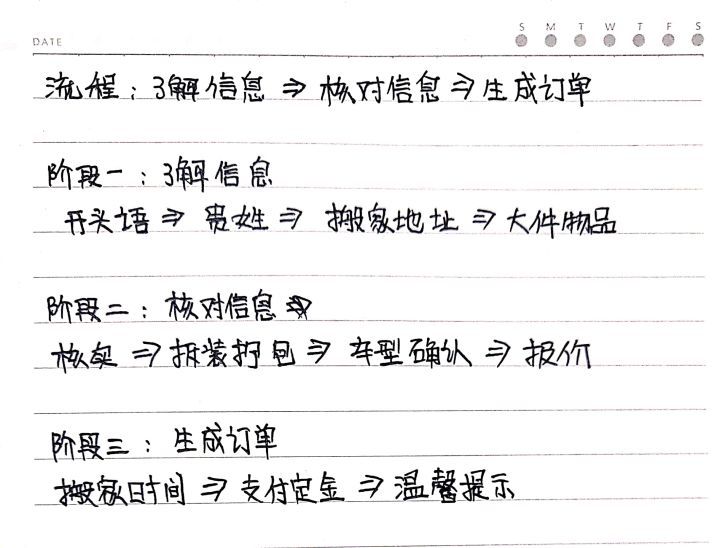 S M T W T F S
DATE
流程：了解信息 ⇒ 核对信息 ⇒ 生成订单
阶段一：了解信息
开头语 ⇒ 贵姓 ⇒ 搬家地址 ⇒ 大件物品
阶段二：核对信息
核实 ⇒ 拆装打包 ⇒ 车型确认 ⇒ 报价
阶段三：生成订单
搬家时间 ⇒ 支付定金 ⇒ 温馨提示